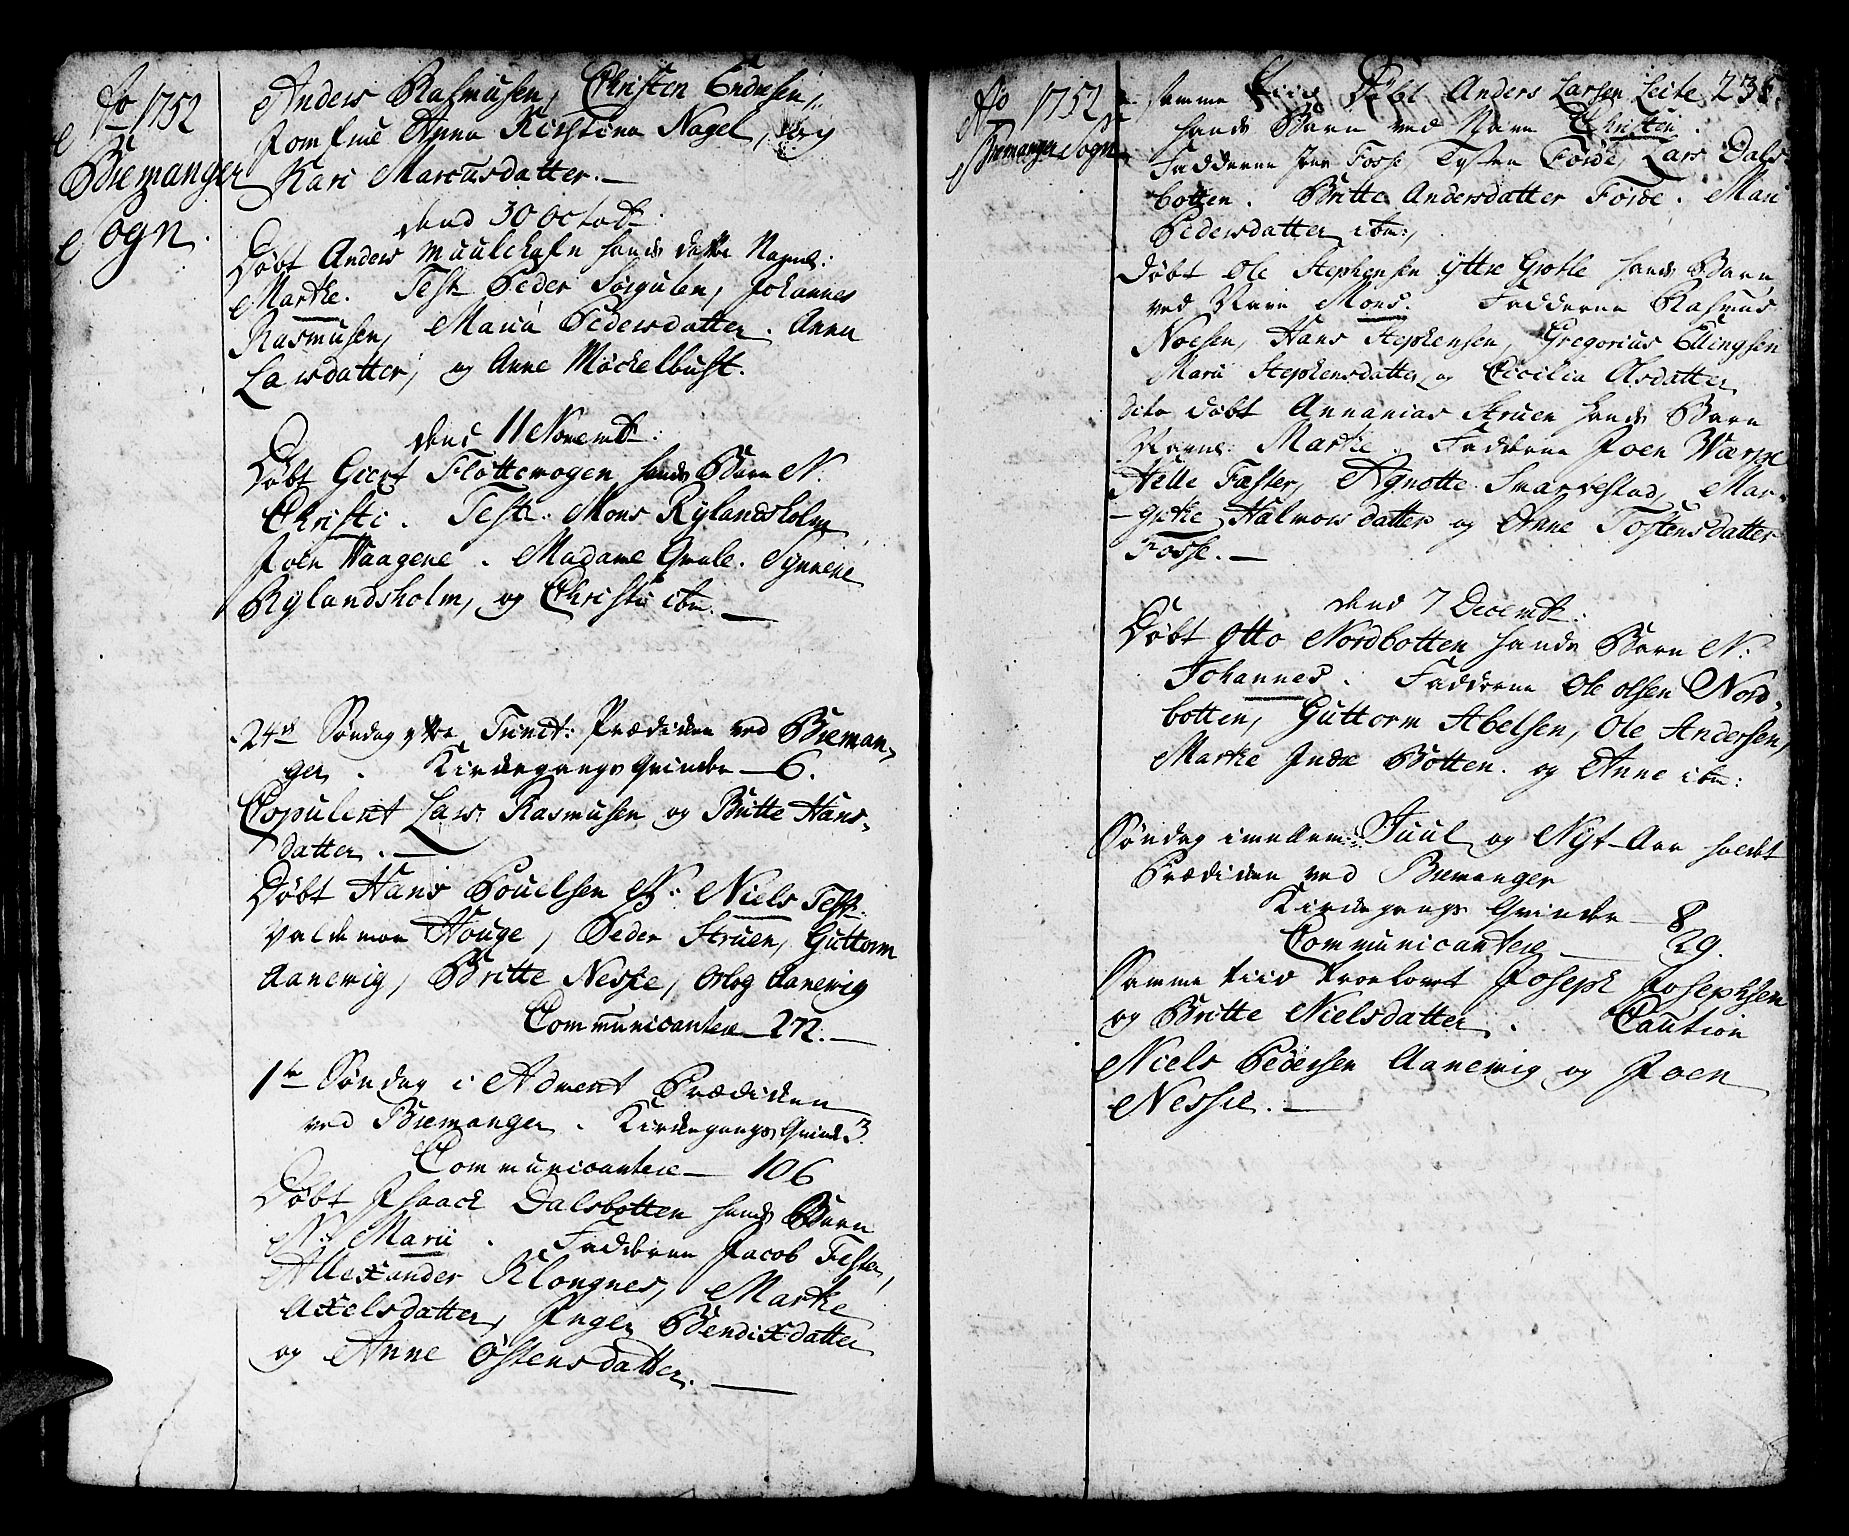 Ao 1752
Bremanger
Sogn.
Anders Rasmusen, Christen Endresen,
Jomfrue Anna Kirstina Nagel, og
Kari Marcusdatter.
dend 30 octob:
Døbt Anders Muulehafn hands datter Nafnl:
Marthe. Test: Peder Sørgulen, Johannes
Rasmusen, Maria Pedersdatter. Anna
Larsdatter, og Anne Møckelbust.
dend 11 Novemb:
Døbt Geert Flottevogen hands Barn N.
Christi. Test: Mons Rylandsholm
Joen Vaagene. Madame Qvale. Synneve
Rylandsholm, og Christi ibm.
24de Søndag efter Trinit: Prædiken ved Breman-
ger. Kirkegangs Qvinder 6.
Copulert Lars Rasmusen og Britte Hans-
datter.
Døbt Hans Pouelsen N: Niels Test:
Valdemor Houge, Peder Struen, Guttorm
Aanevig, Britte Nesse, Orlog Aanevig
Communicantere 272.
1te Søndag i Advent Prædiken
ved Bremanger. Kirkegangs Qvind: 3.
Communicantere 106
Døbt Isaack Dalsbotten hands Barn
N: Marii. Fadderne Jacob Fester,
Allexander Klongnes, Marthe
Axelsdatter, Inger Bendixdatter
og Anne Østensdatter.
Ao 1752
Bremanger Sogn
samme Tiid Døbt Anders Larsen Leite 235.
hands Barn ved Navn Christen.
Fadderne Per Fosse, Tosten Førde, Lars Dals
botten. Britte Andersdatter Førde. Mari
Pedersdatter ibm:
Døbt Ole Stephensen ÿttre Grotle hands Barn
ved Navn Mons. Fadderne Rasmus
Noesen, Hans Stephensen, Gregorius Ellingsen
Marii Stephensdatter og Cicilia Olsdatter
dito døbt Annanias Struen hands Barn
Navnl: Marthe. Fadderne Joen Warpe
Helle Fæster, Agnotte Svarvestad, Mar-
grethe Halmorsdatter og Anne Tostensdatter
Fosse.
dend 7 Decemb:
Døbt Otto Nordbotten hands Barn N:
Johannes. Fadderne Ole olsen Nord-
botten, Guttorm Abelsen, Ole Andersen,
Marthe Indre Botten. og Anne ibm:
Søndag imellem Juul og Nÿt-Aar holdt
Prædiken ved Bremanger
Kirkegangs Qvinder 8
Communicantere 29.
Samme tiid troelovet Joseph Josephsen
og Britte Nielsdatter. Caution
Niels Pedersen Aanevig og Joen
Nesse.